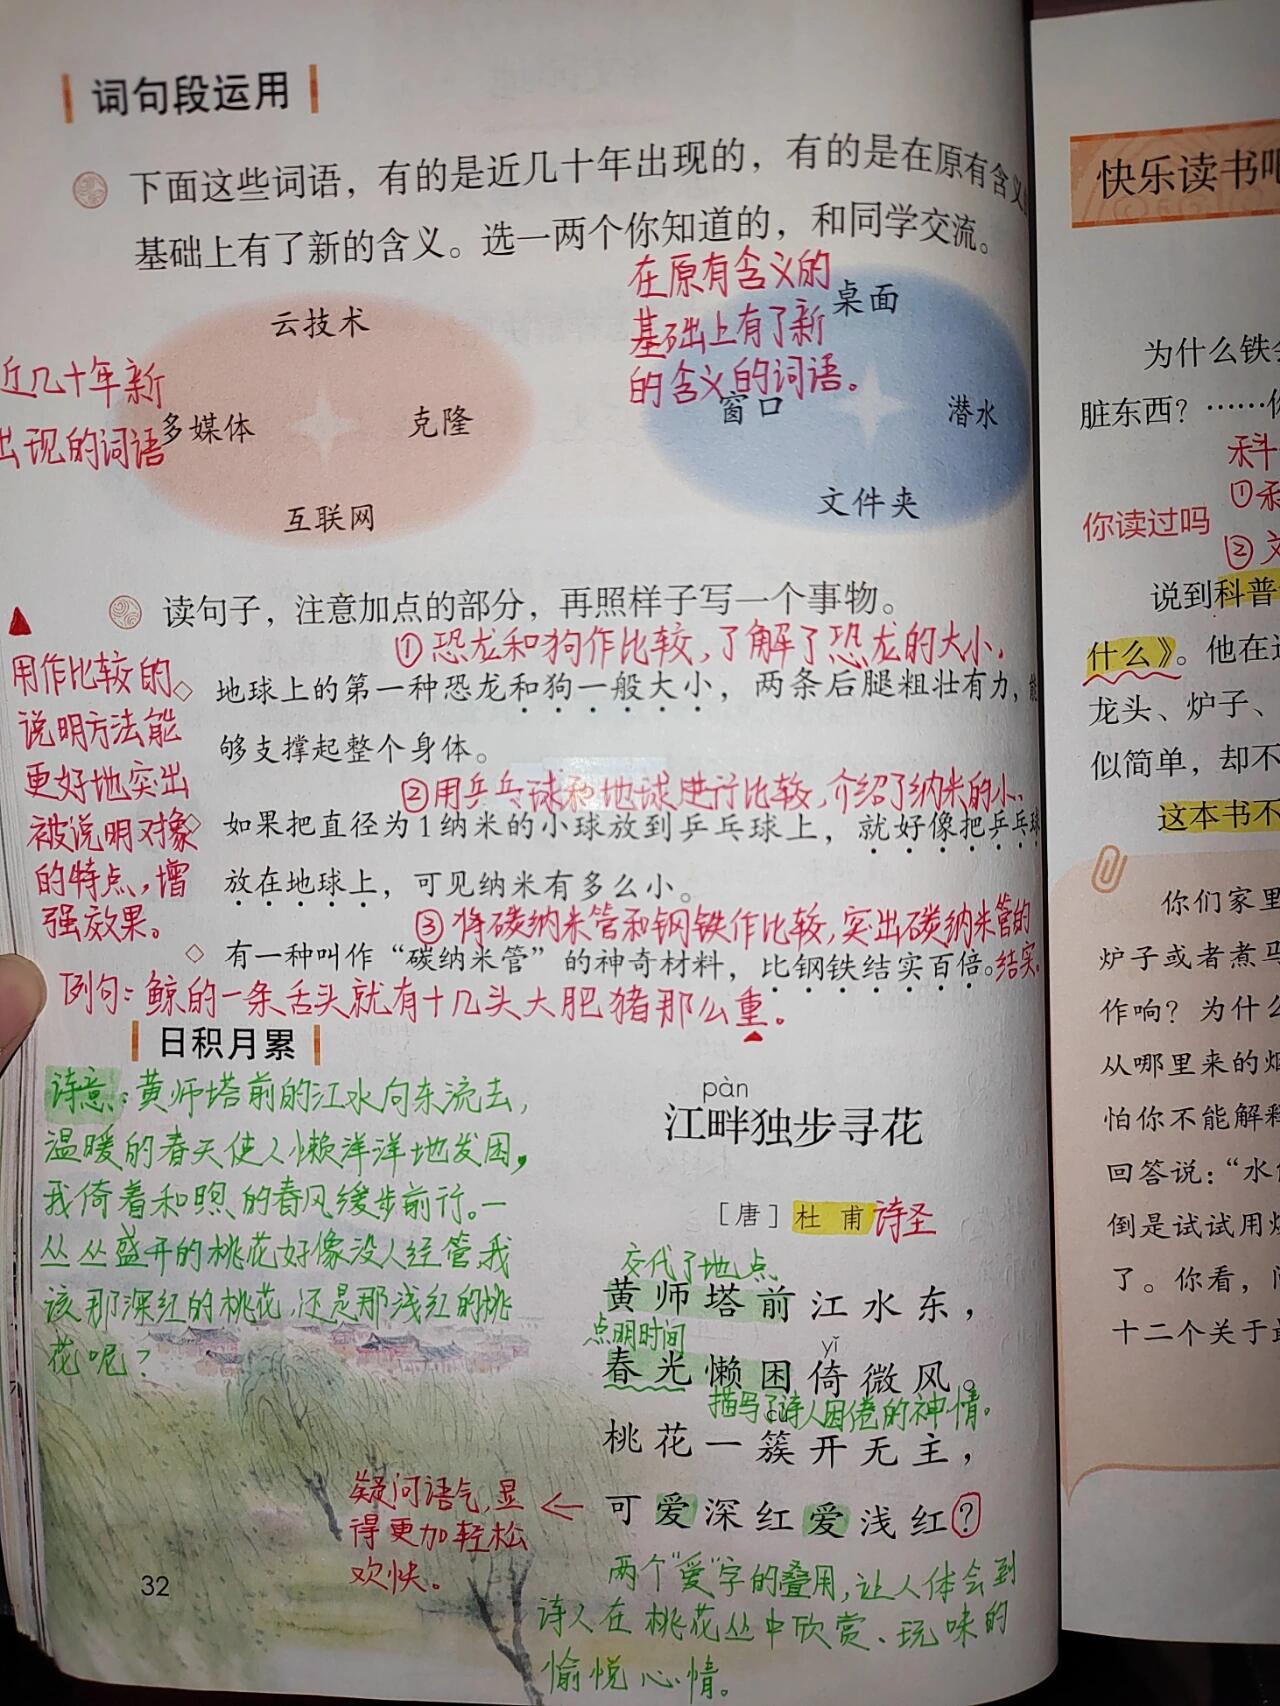 词句段运用
下面这些词语，有的是近几十年出现的，有的是在原有含义的
基础上有了新的含义。选一两个你知道的，和同学交流。
近几十年新
出现的词语
云技术
多媒体
克隆
互联网
在原有含义的
基础上有了新
的含义的词语。
桌面
窗口
潜水
文件夹
读句子，注意加点的部分，再照样子写一个事物。
①恐龙和狗作比较，了解了恐龙的大小。
地球上的第一种恐龙和狗一般大小，两条后腿粗壮有力，能
够支撑起整个身体。
②用乒乓球和地球进行比较，介绍了纳米的小。
如果把直径为1纳米的小球放到乒乓球上，就好像把乒乓球
放在地球上，可见纳米有多么小。
③将碳纳米管和钢铁作比较，突出碳纳米管的
结实。
有一种叫作“碳纳米管”的神奇材料，比钢铁结实百倍。
用作比较的
说明方法能
更好地突出
被说明对象
的特点，增
强效果。
例句：鲸的一条舌头就有十几头大肥猪那么重。
日积月累
诗意：黄师塔前的江水向东流去，
温暖的春天使人懒洋洋地发困，
我倚着和煦的春风缓步前行。一
丛丛盛开的桃花好像没人经管，我
该那深红的桃花，还是那浅红的桃
花呢？
pàn
江畔独步寻花
［唐］杜甫 诗圣
交代了地点
黄师塔前江水东，
点明时间
yǐ
春光懒困倚微风。
描写了诗人困倦的神情。
cù
桃花一簇开无主，
可爱深红爱浅红？
疑问语气，显
得更加轻松
欢快。
两个“爱”字的叠用，让人体会到
诗人在桃花丛中欣赏、玩味的
愉悦心情。
32
快乐读书吧
为什么铁会
脏东西？……你
科
①科
你读过吗
②文
说到科普
什么》。他在这
龙头、炉子、
似简单，却不
这本书不
你们家里
炉子或者煮马
作响？为什么
从哪里来的烟
怕你不能解释
回答说：“水
倒是试试用炉
了。你看，
十二个关于